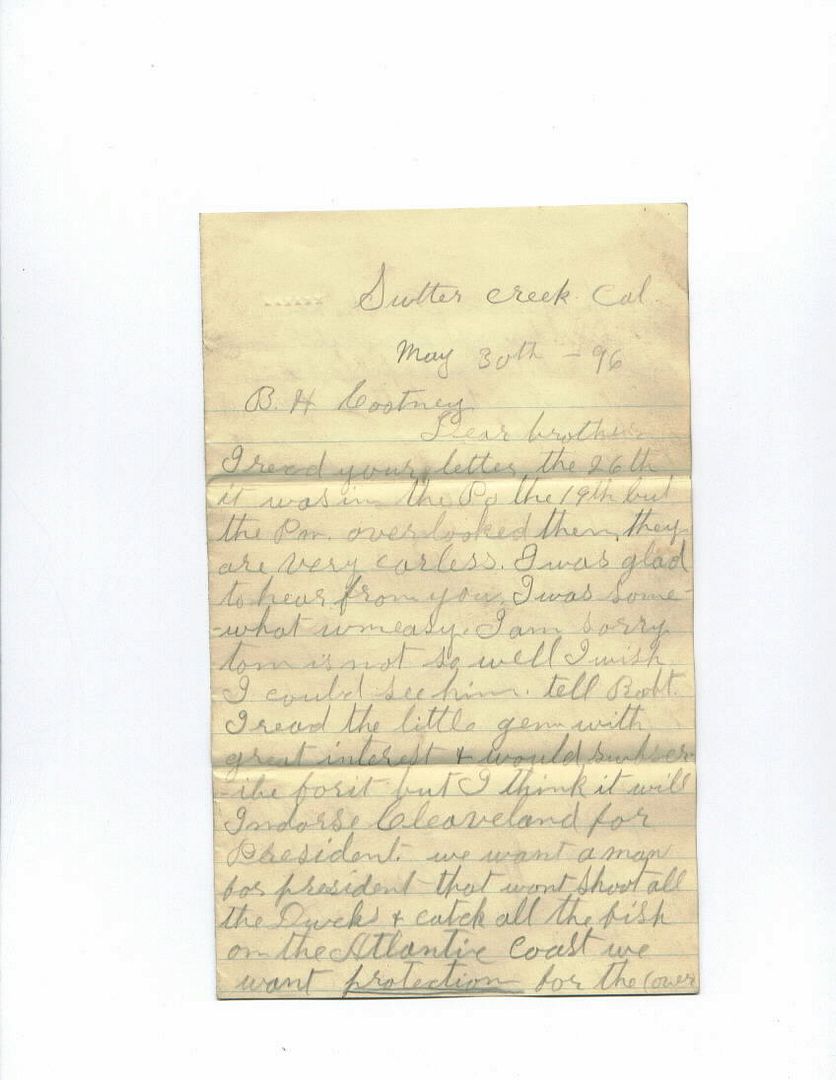 Sutter Creek. Cal.
May 30th - 96
B. H Cootney
Dear brother
I read your letter the 26th
it was in the Po the 19th but
the Pm. over looked them, they
are very carless. I was glad
to hear from you, I was some-
-what unneasy. I am sorry
tom is not so well I wish
I could see him. tell Robt.
I read the little gem with
great interest & would subscr
-ibe forit but I think it will
Indorse Cleaveland for
President. we want a man
for president that wont shoot all
the Ducks & catch all the fish
on the Atlantic Coast we
want protection for the